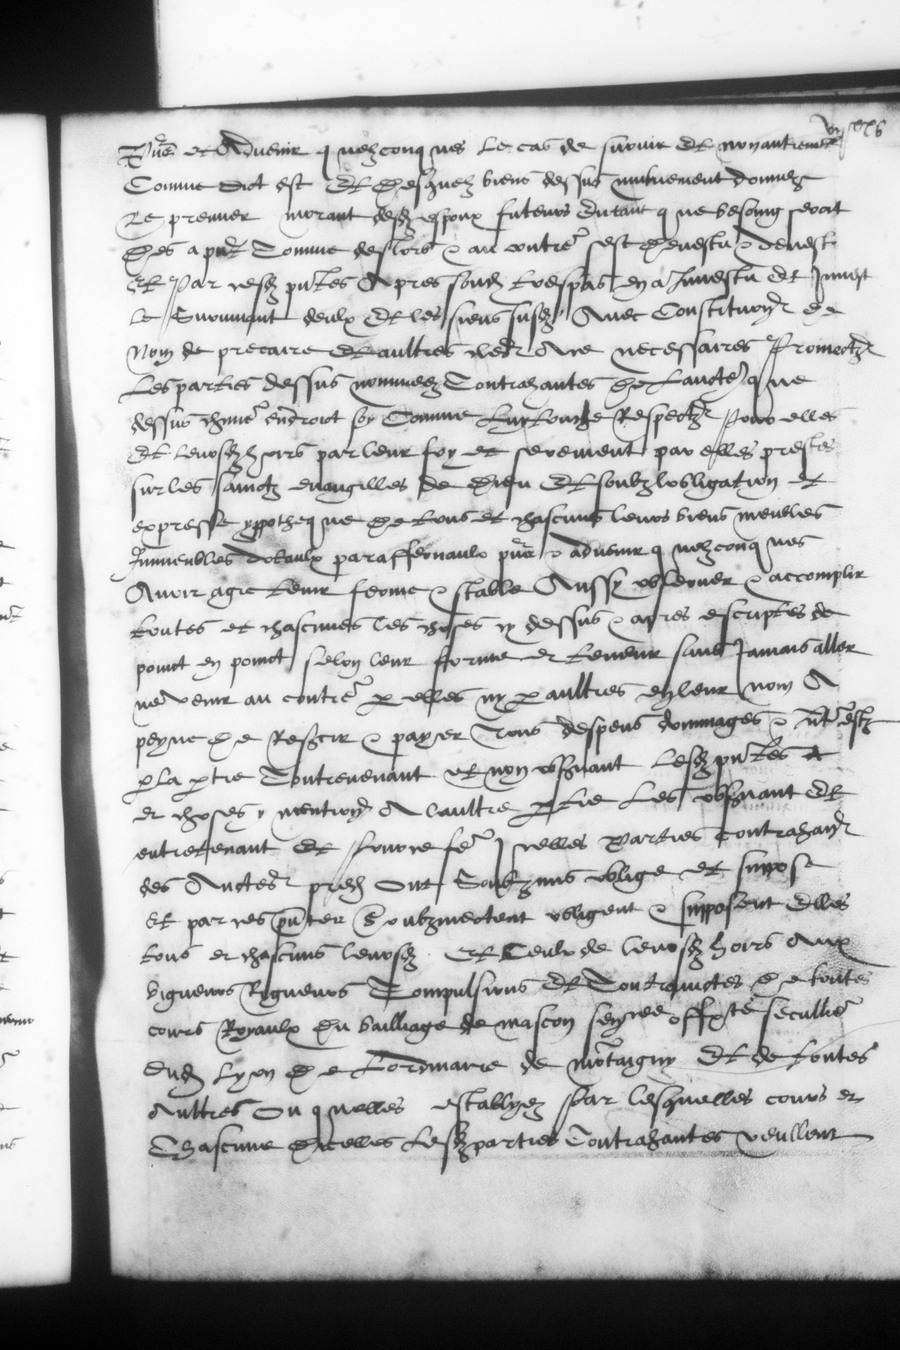 et advenir quelzconques le cas de survie et non autrement
Comme dict est Et desquelz biens dessus mutuement donnez
Le premier morant desd espoux futeurs d'autant que besoing seroit
Dès a pnt Comme deslors & au contre sest devestu & devest
Et Par cesd pntes Apres sond trespas en a Investu et Invest
le Survivant deulx et les siens susd Avec Constitution de
Nom de precaire et aultres necessaires Promectz
Les parties dessus nommeez Contrahantes de lauctté que
dessus chune endroict soy Comme luy touche Respect Pour elles
et leursd hoirs par leur foy et serement par elles prestes
sur les sainctz evangilles de Dieu et soubz lobligation et
expresse ypotheque de tous et chascuns leurs biens meubles
Immeubles dotaulx paraffernaulx pns & advenir quelzconques
Avoir agre tenir ferme & stable Aussy observer & accomplir
toutes et chascunes les choses cy dessus & apres escriptes de
poinct en poinct selon leur forme et teneur sans Jamais aller
ne venir au contre p elles ny p aultres en leur nom A
peyne de Reffere & payer Tous despens dommages &
p la ptie Contrevenant et non obsvant lesd pntes
et choses y mention A laultre ptie Les obsvant et
entretenant Et Pour ce fe Icelles Parties Contrahans
des Auctes pred Ont Soubzmis oblige et suppose
et par ces pntes Soubzmectent obligent & supposent elles
tous et chascuns leursd Et Ceulx de leursd hoirs Aux
vigueurs Rigueurs Compulsions Et Contrainctes de toutes
cours Royaulx du bailliage de mascon sen secullie
dud Lyon de Lordinaire de montaigny Et de toutes
Aultres On quelles establyes Par lesquelles cours et
Chascune dicelles Lesd parties Contrahantes veullent